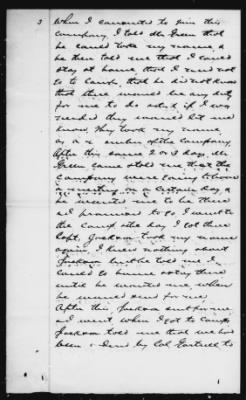 3
When I consented to join this
company, I told Mr Green that
he could took my name, &
he then told me that I could
stay at home, that I need not
go to Camp, that he did not know
that there would be any duty
for me to do but if I was
needed they would let me
know. They took my name
as a member of the Company.
After this some 2 or 3 days, Mr
Green came & told me that the
company were going to have
a meeting on a certain day, &
he wanted me to be there
I promised to go I went to
the camp the day I got there
Capt. Jackson took my name
again, I knew nothing about
Jackson but he told me I
could go home & stay there
until he wanted me, when
he would send for me
After this, Jackson sent for me
& I went when I got to Camp
Jackson told me that we had
been by Col. to